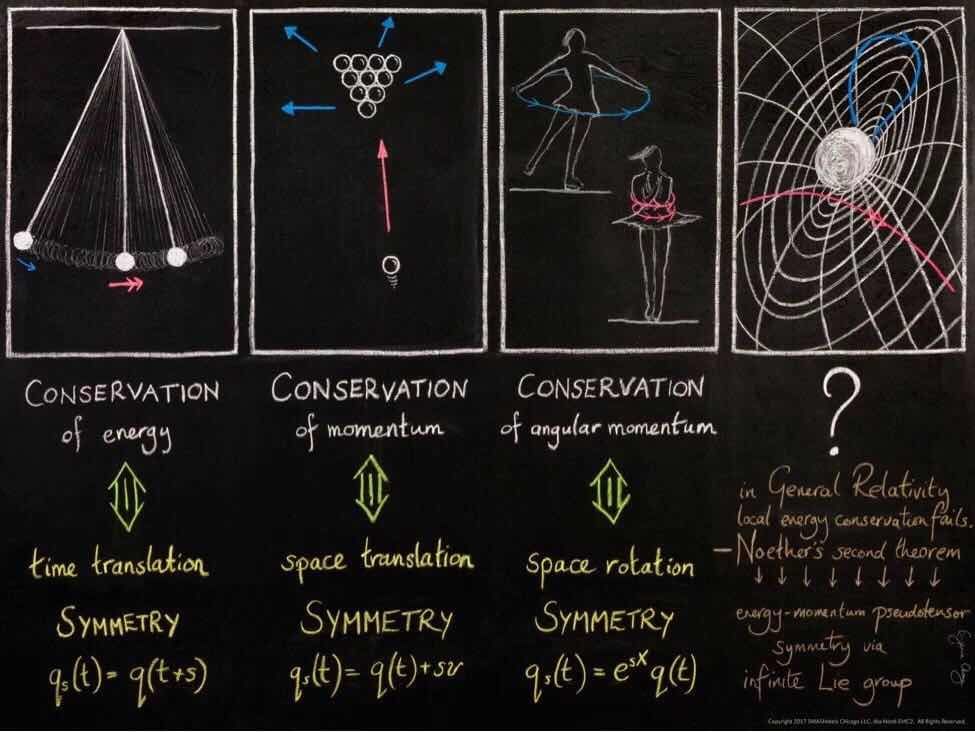 CONSERVATION
of energy
time translation
SYMMETRY
qₛ(t) = q(t+s)
CONSERVATION
of momentum
space translation
SYMMETRY
qₛ(t) = q(t) + sv
CONSERVATION
of angular momentum
space rotation
SYMMETRY
qₛ(t) = eˢˣ q(t)
?
in General Relativity
local energy conservation fails
– Noether's second theorem
↓ ↓ ↓ ↓ ↓ ↓ ↓ ↓
energy-momentum pseudotensor
symmetry via
infinite Lie group